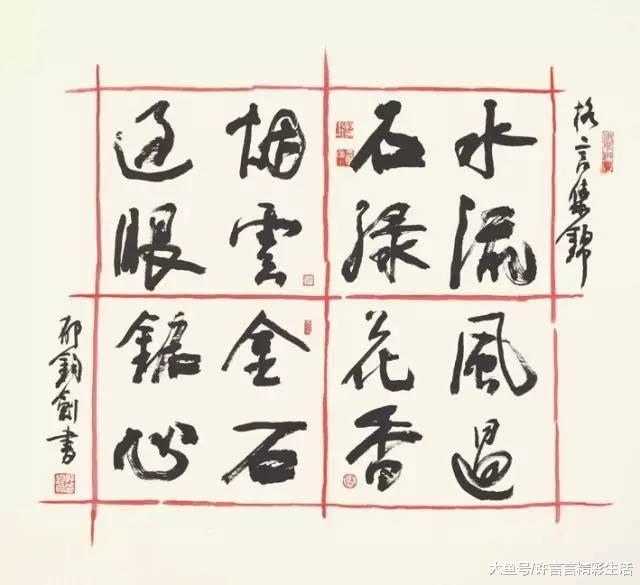 格言集錦
水流
石緑
風過
花香
烟雲
過眼
金石
心
郁鈞劍書
大鱼号/许言言精彩生活